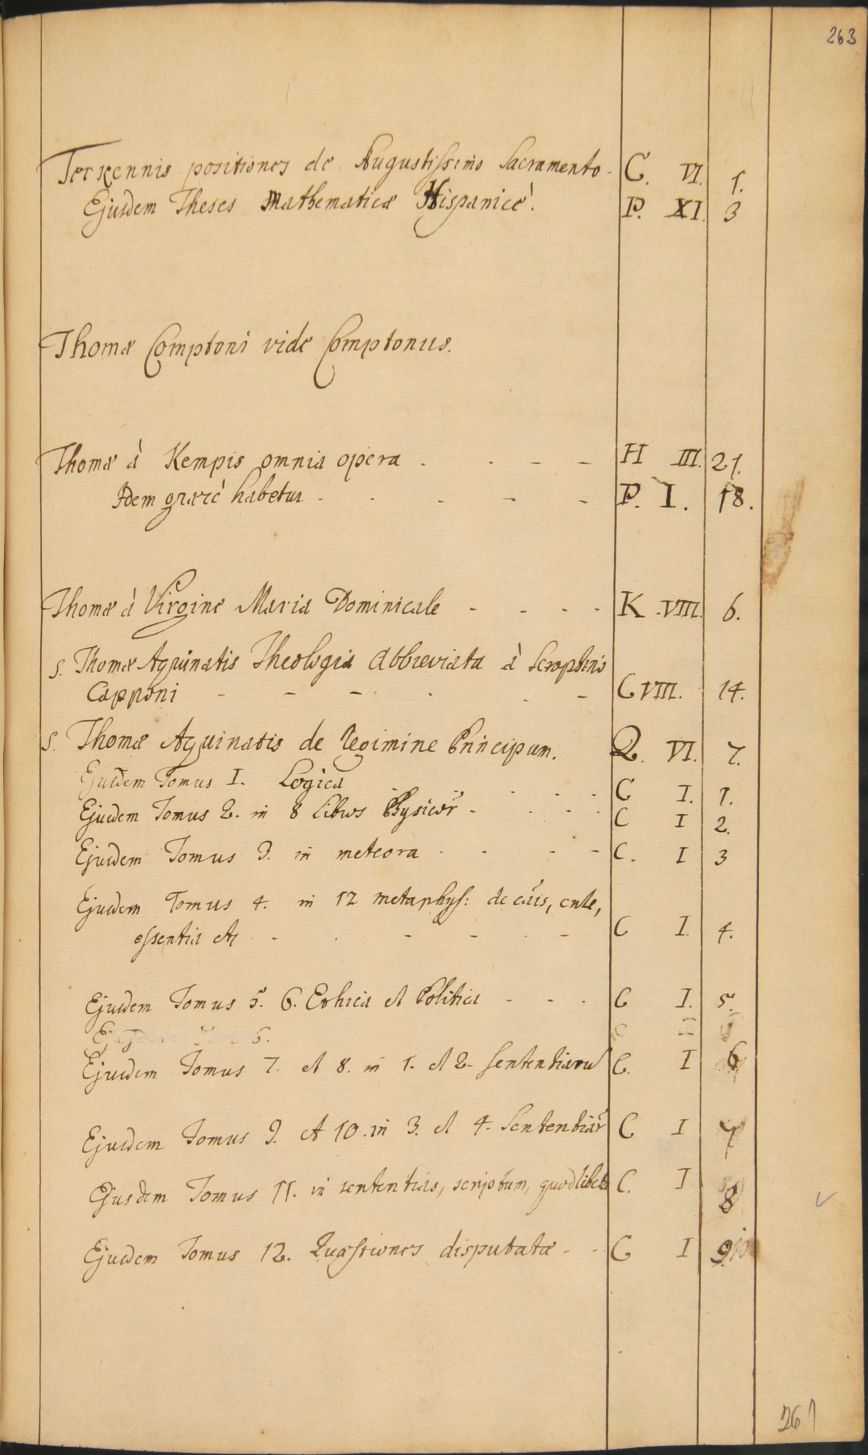 263
Terxennis positiones de Augustissimo Sacramento - C. VI. 1.
Ejusdem Theses Mathematicæ Hispanicè. P. XI. 3
Thomæ Comptoni vide Comptonus.
Thomæ à Kempis omnia opera . . - - - H III. 21.
Idem græcè habetur . . . - - P. I. 18.
Thomæ à Virgine Maria Dominicale - - - - K VIII. 6.
S. Thomæ Aquinatis Theologia abbreviata à Seraphino
Capponi - - - . . - C VIII. 14.
S. Thomæ Aquinatis de Regimine Principum. Q. VI. 7.
Ejusdem Tomus I. Logica . . . - - C I. 1.
Ejusdem Tomus 2. in 8 libros Physicor̃ - . . . . C I 2.
Ejusdem Tomus 3. in meteora . . - - C. I 3
Ejusdem Tomus 4. in 12 metaphys: de cãis, ente,
essentia etc - . - - - C I. 4.
Ejusdem Tomus 5. 6. Ethica et Politica - - . C I. 5.
6.
Ejusdem Tomus 7. et 8. in 1. et 2. sententiaru C. I 6
Ejusdem Tomus 9. et 10. in 3. et 4. Sententiar̃ C I 7
Ejusdem Tomus 11. in sententias, scriptum, quodlibeta C. I 8
Ejusdem Tomus 12. Quæstiones disputatæ - - C I 9
261